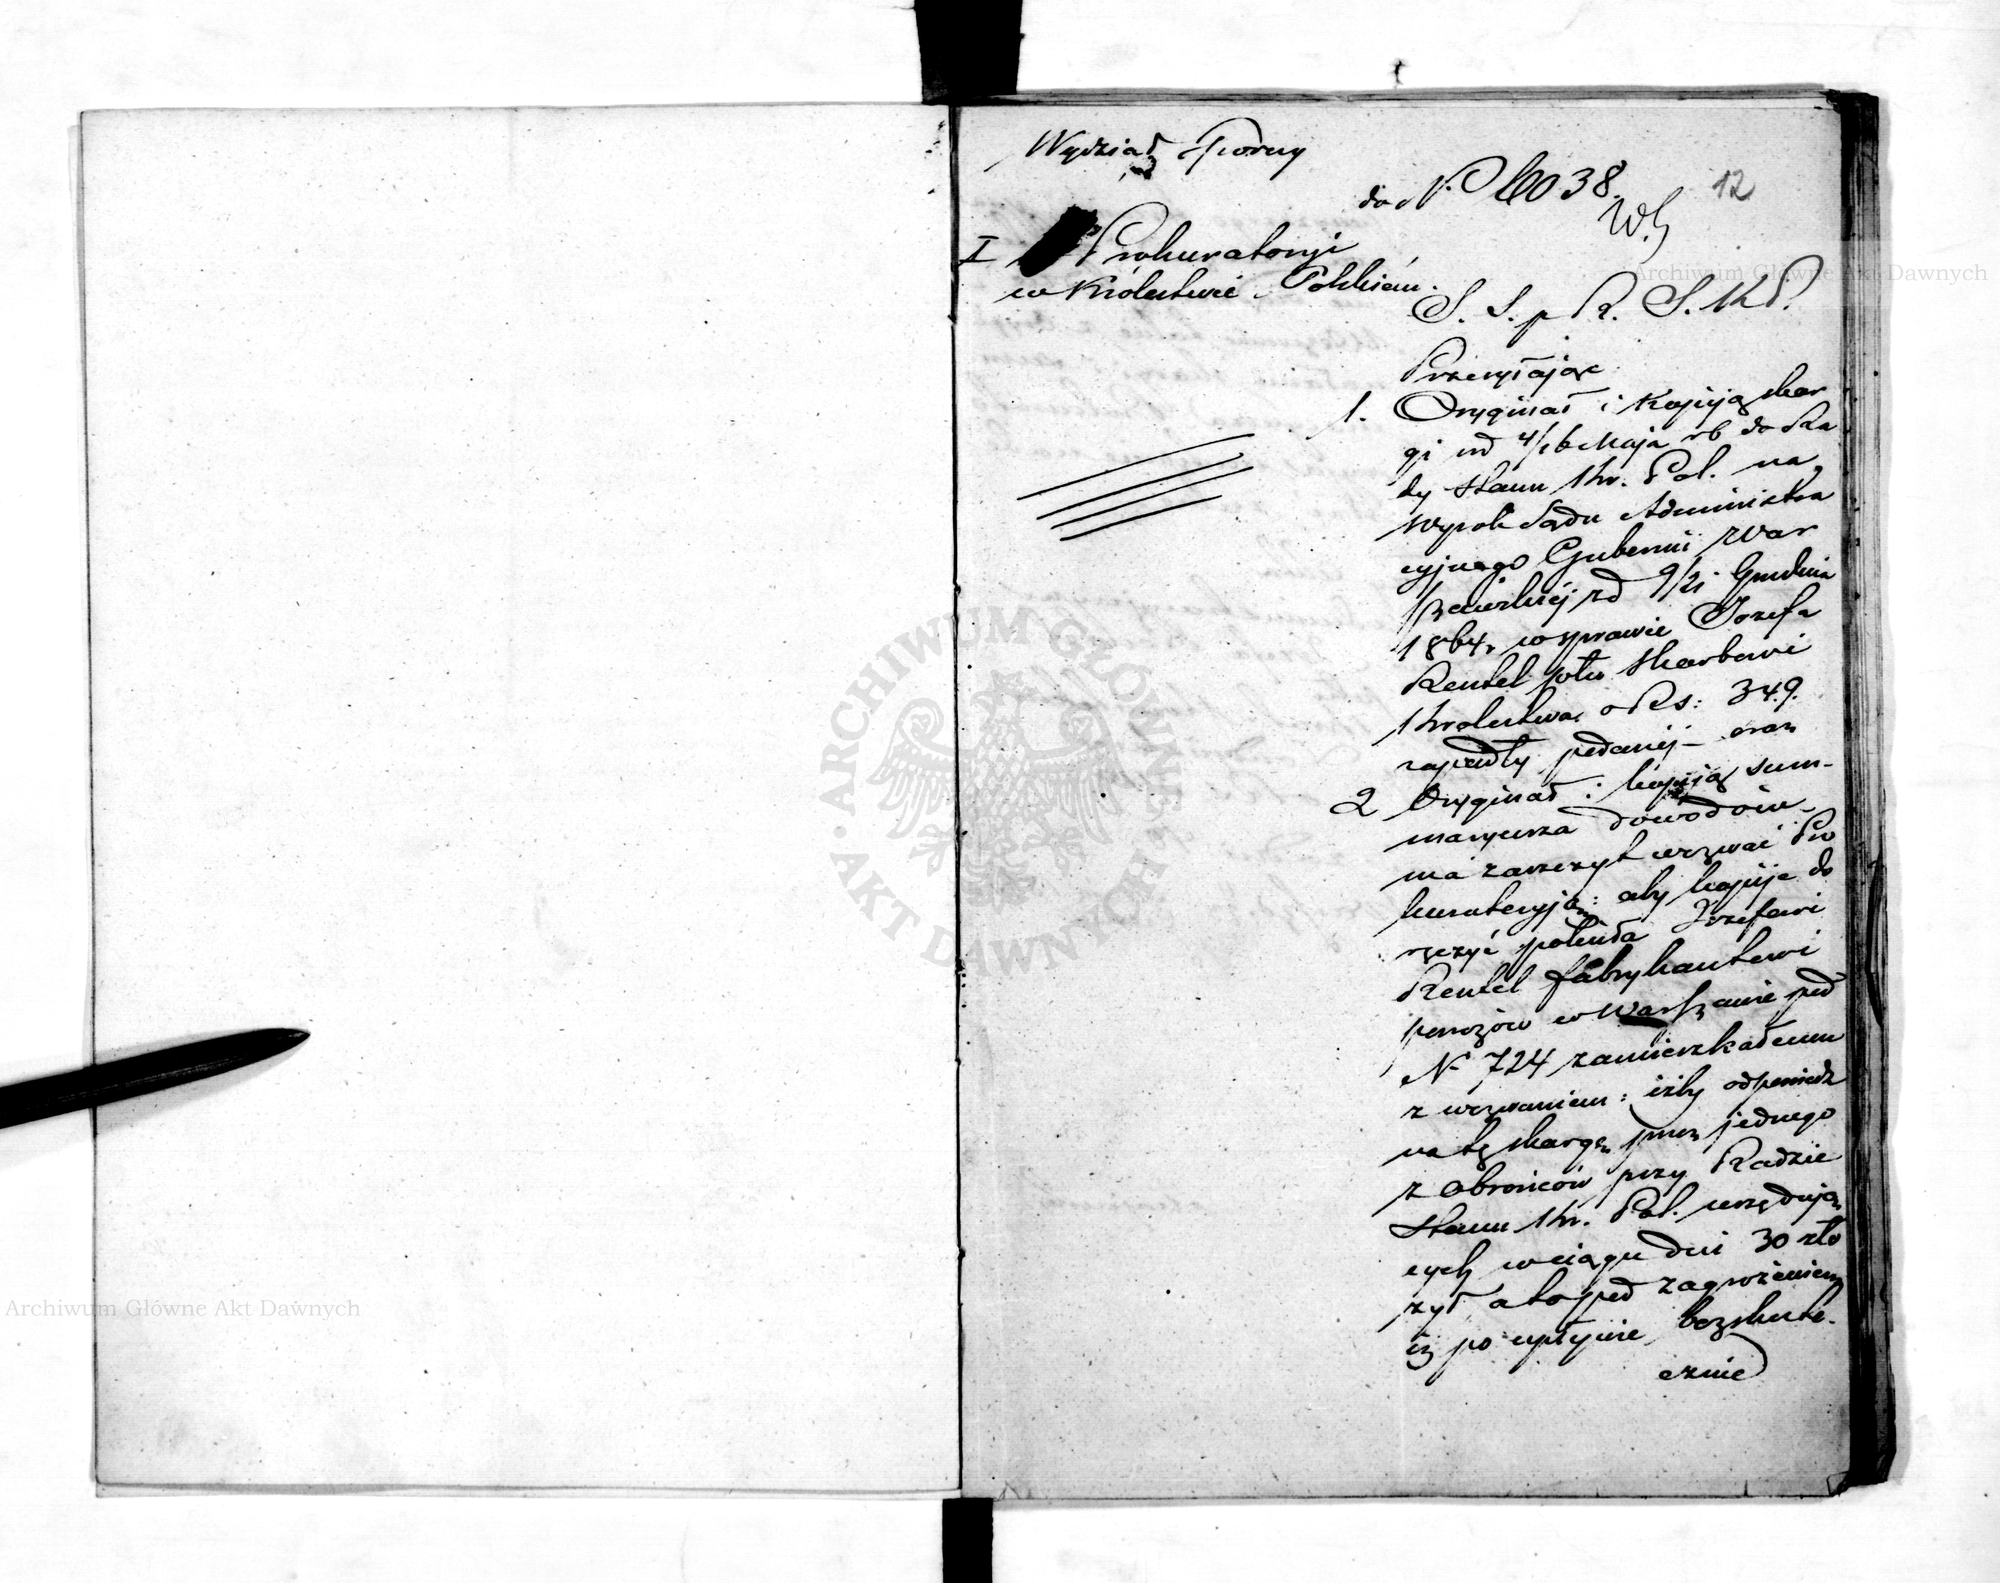 Wydział Sporny
do N. 6038.
12
I Prokuratoryi
w Królestwie Polskiém.
S. S. p R. S. K P.
Przesyłając
1. Oryginał i Kopiją skar
gi od 4/16 Maja rb do Ra
dy Stanu Kr. Pol. na
wyrok Sądu Administra
cyjnego Gubernii War
szawskiej z d 9/21 Grudnia
1864. w sprawie Józefa
Rentel ptko Skarbowi
Królestwa, o Rs: 349.
zapadły podanej – oraz
2 Oryginał i kopiją sum-
maryusza dowodów –
ma zaszczyt wezwać Pro
kuratoryją: aby kopije do
ręczyć poleciła Józefowi
Rentel fabrykantowi
powozów w Warszawie pod
N 724 zamieszkałemu
z wezwaniem: iżby odpowiedz
na tę skargę przez jednego
z obrońców przy Radzie
Stanu Kr. Pol. urzędują
cych w ciągu dni 30 zło
żył a to pod zagrożeniem
iż po upływie bezskute-
cznie
Archiwum Główne Akt Dawnych
Archiwum Główne Akt Dawnych
ARCHIWUM GŁÓWNE · AKT DAWNYCH ·